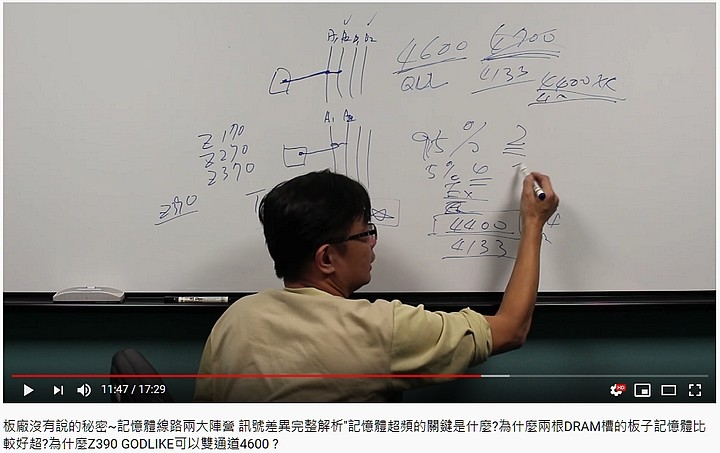 A1 A2 B1 B2
4600 4700
QVL 4133 4400
A1 A2
Z170
Z270
Z370
95% 2
5% 4
EX
4400
4133
11:47 / 17:29
HD
板廠沒有說的秘密~記憶體線路兩大陣營 訊號差異完整解析"記憶體超頻的關鍵是什麼?為什麼兩根DRAM槽的板子記憶體比
較好超?為什麼Z390 GODLIKE可以雙通道4600 ?